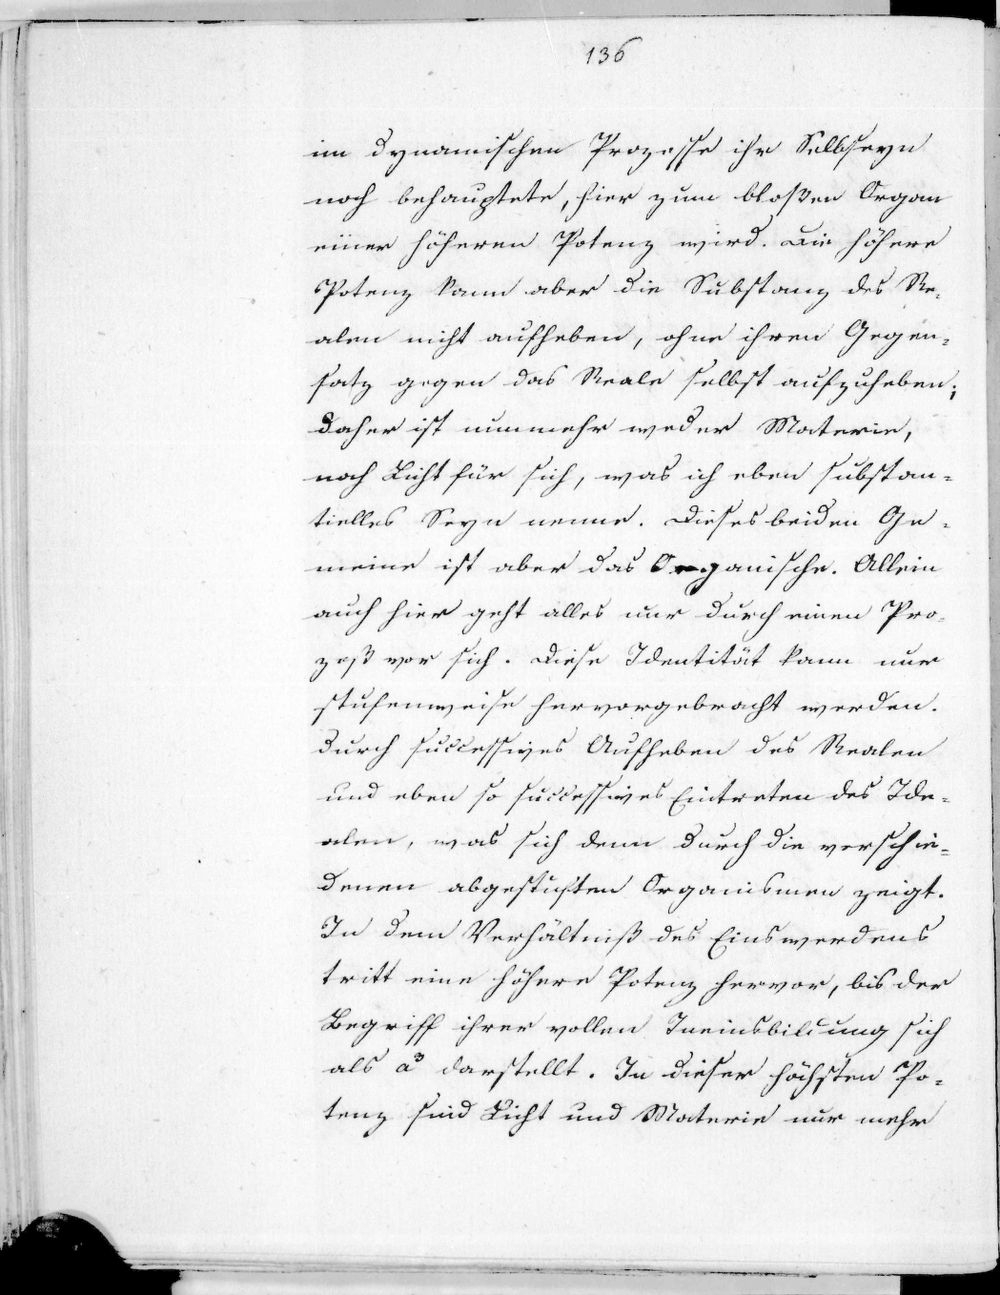 136
im dynamischen Prozesse ihr Selbseyn
noch behauptete, hier zum bloßen Organ
einer höheren Potenz wird. Die höhere
Potenz kann aber die Substanz des Re-
alen nicht aufheben, ohne ihren Gegen-
satz gegen das Reale selbst aufzuheben;
daher ist nunmehr weder Materie,
noch Licht für sich, was ich eben substan-
tielles Seyn nenne. Dieses beiden Ge-
meine ist aber das Organische. Allein
auch hier geht alles nur durch einen Pro-
zeß vor sich. Diese Identität kann nur
stufenweise hervorgebracht werden.
durch successives Aufheben des Realen
und eben so successives Eintreten des Ide-
alen, was sich denn durch die verschie-
denen abgestuften Organismen zeigt.
In dem Verhältniß des Einswerdens
tritt eine höhere Potenz hervor, bis der
Begriff ihrer vollen Ineinsbildung sich
als a³ darstellt. In dieser höchsten Po-
tenz sind Licht und Materie nur mehr